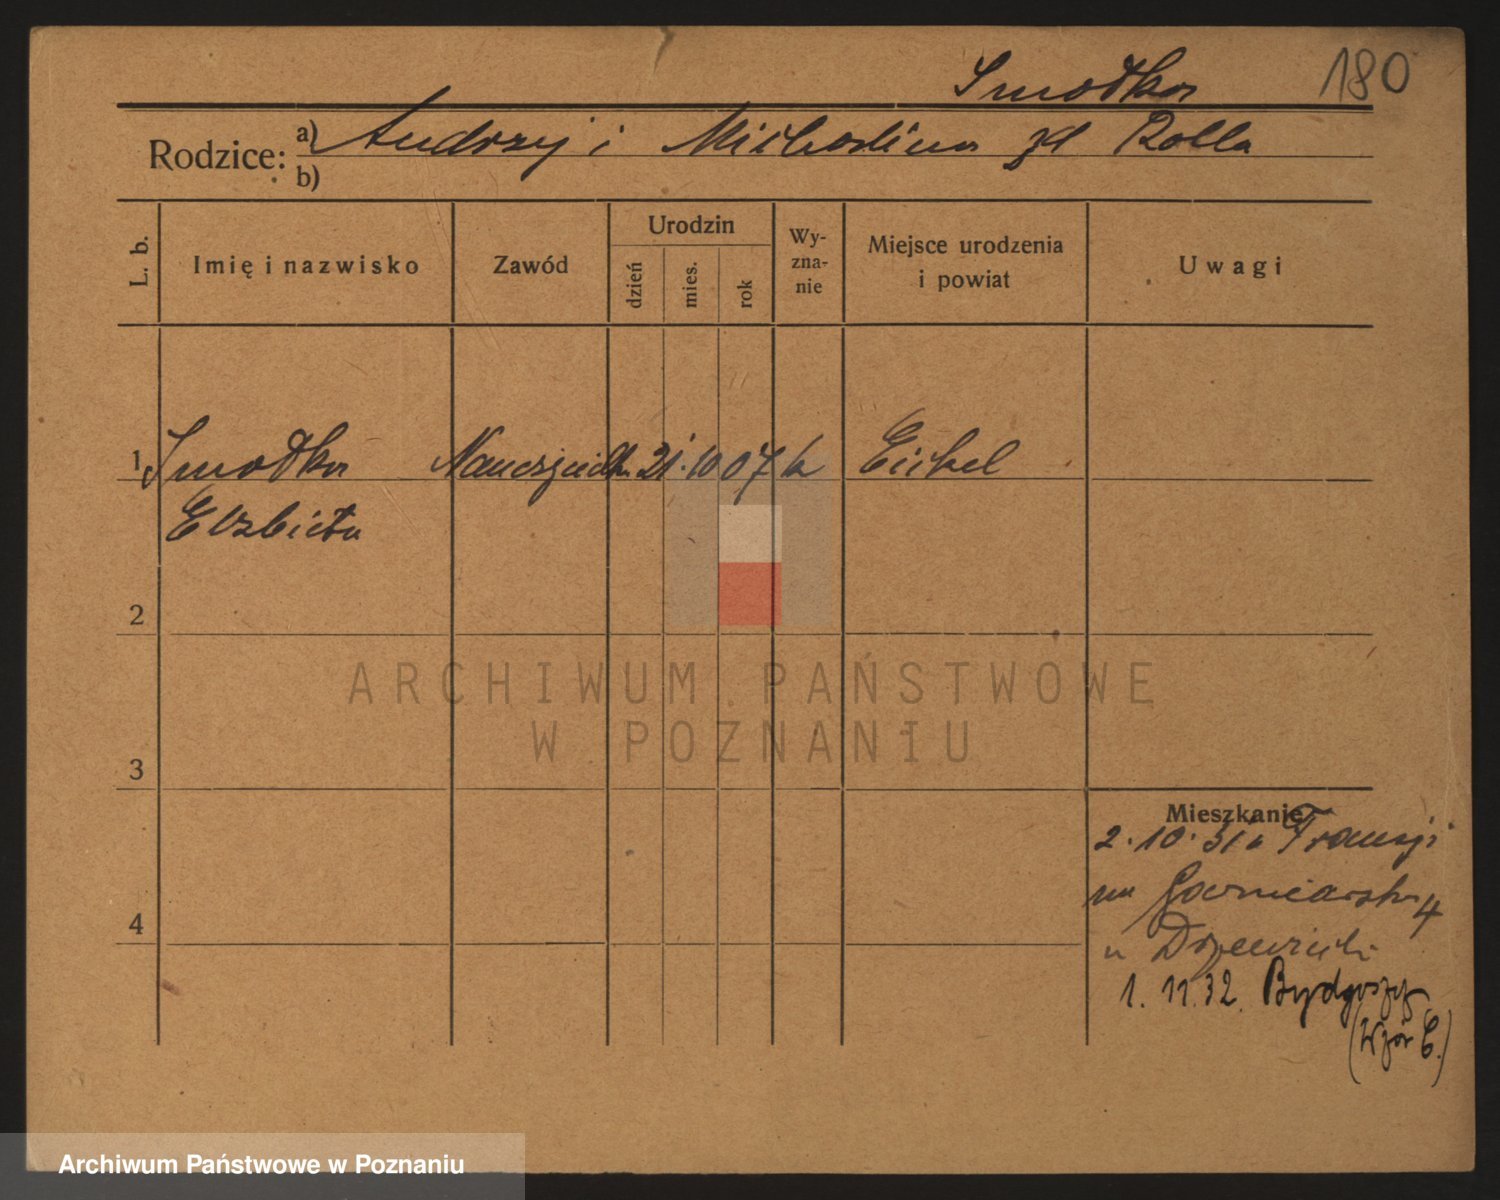 Smodka 180
Rodzice: a) Andrzej i Michalina zd Rolla
b)
L. b. Imię i nazwisko Zawód Urodzin dzień mies. rok Wy-zna-nie Miejsce urodzenia i powiat Uwagi
1 Smodka Nauczycielka 21. 10 07 k Eickel
Elzbieta
2
3
Mieszkanie
2. 10. 31 z Francji
na Garncarska 4
4
u Drzewiecki
1. 11. 32. Bydgoszcz
(Wzór C.)
ARCHIWUM PAŃSTWOWE
W POZNANIU
Archiwum Państwowe w Poznaniu